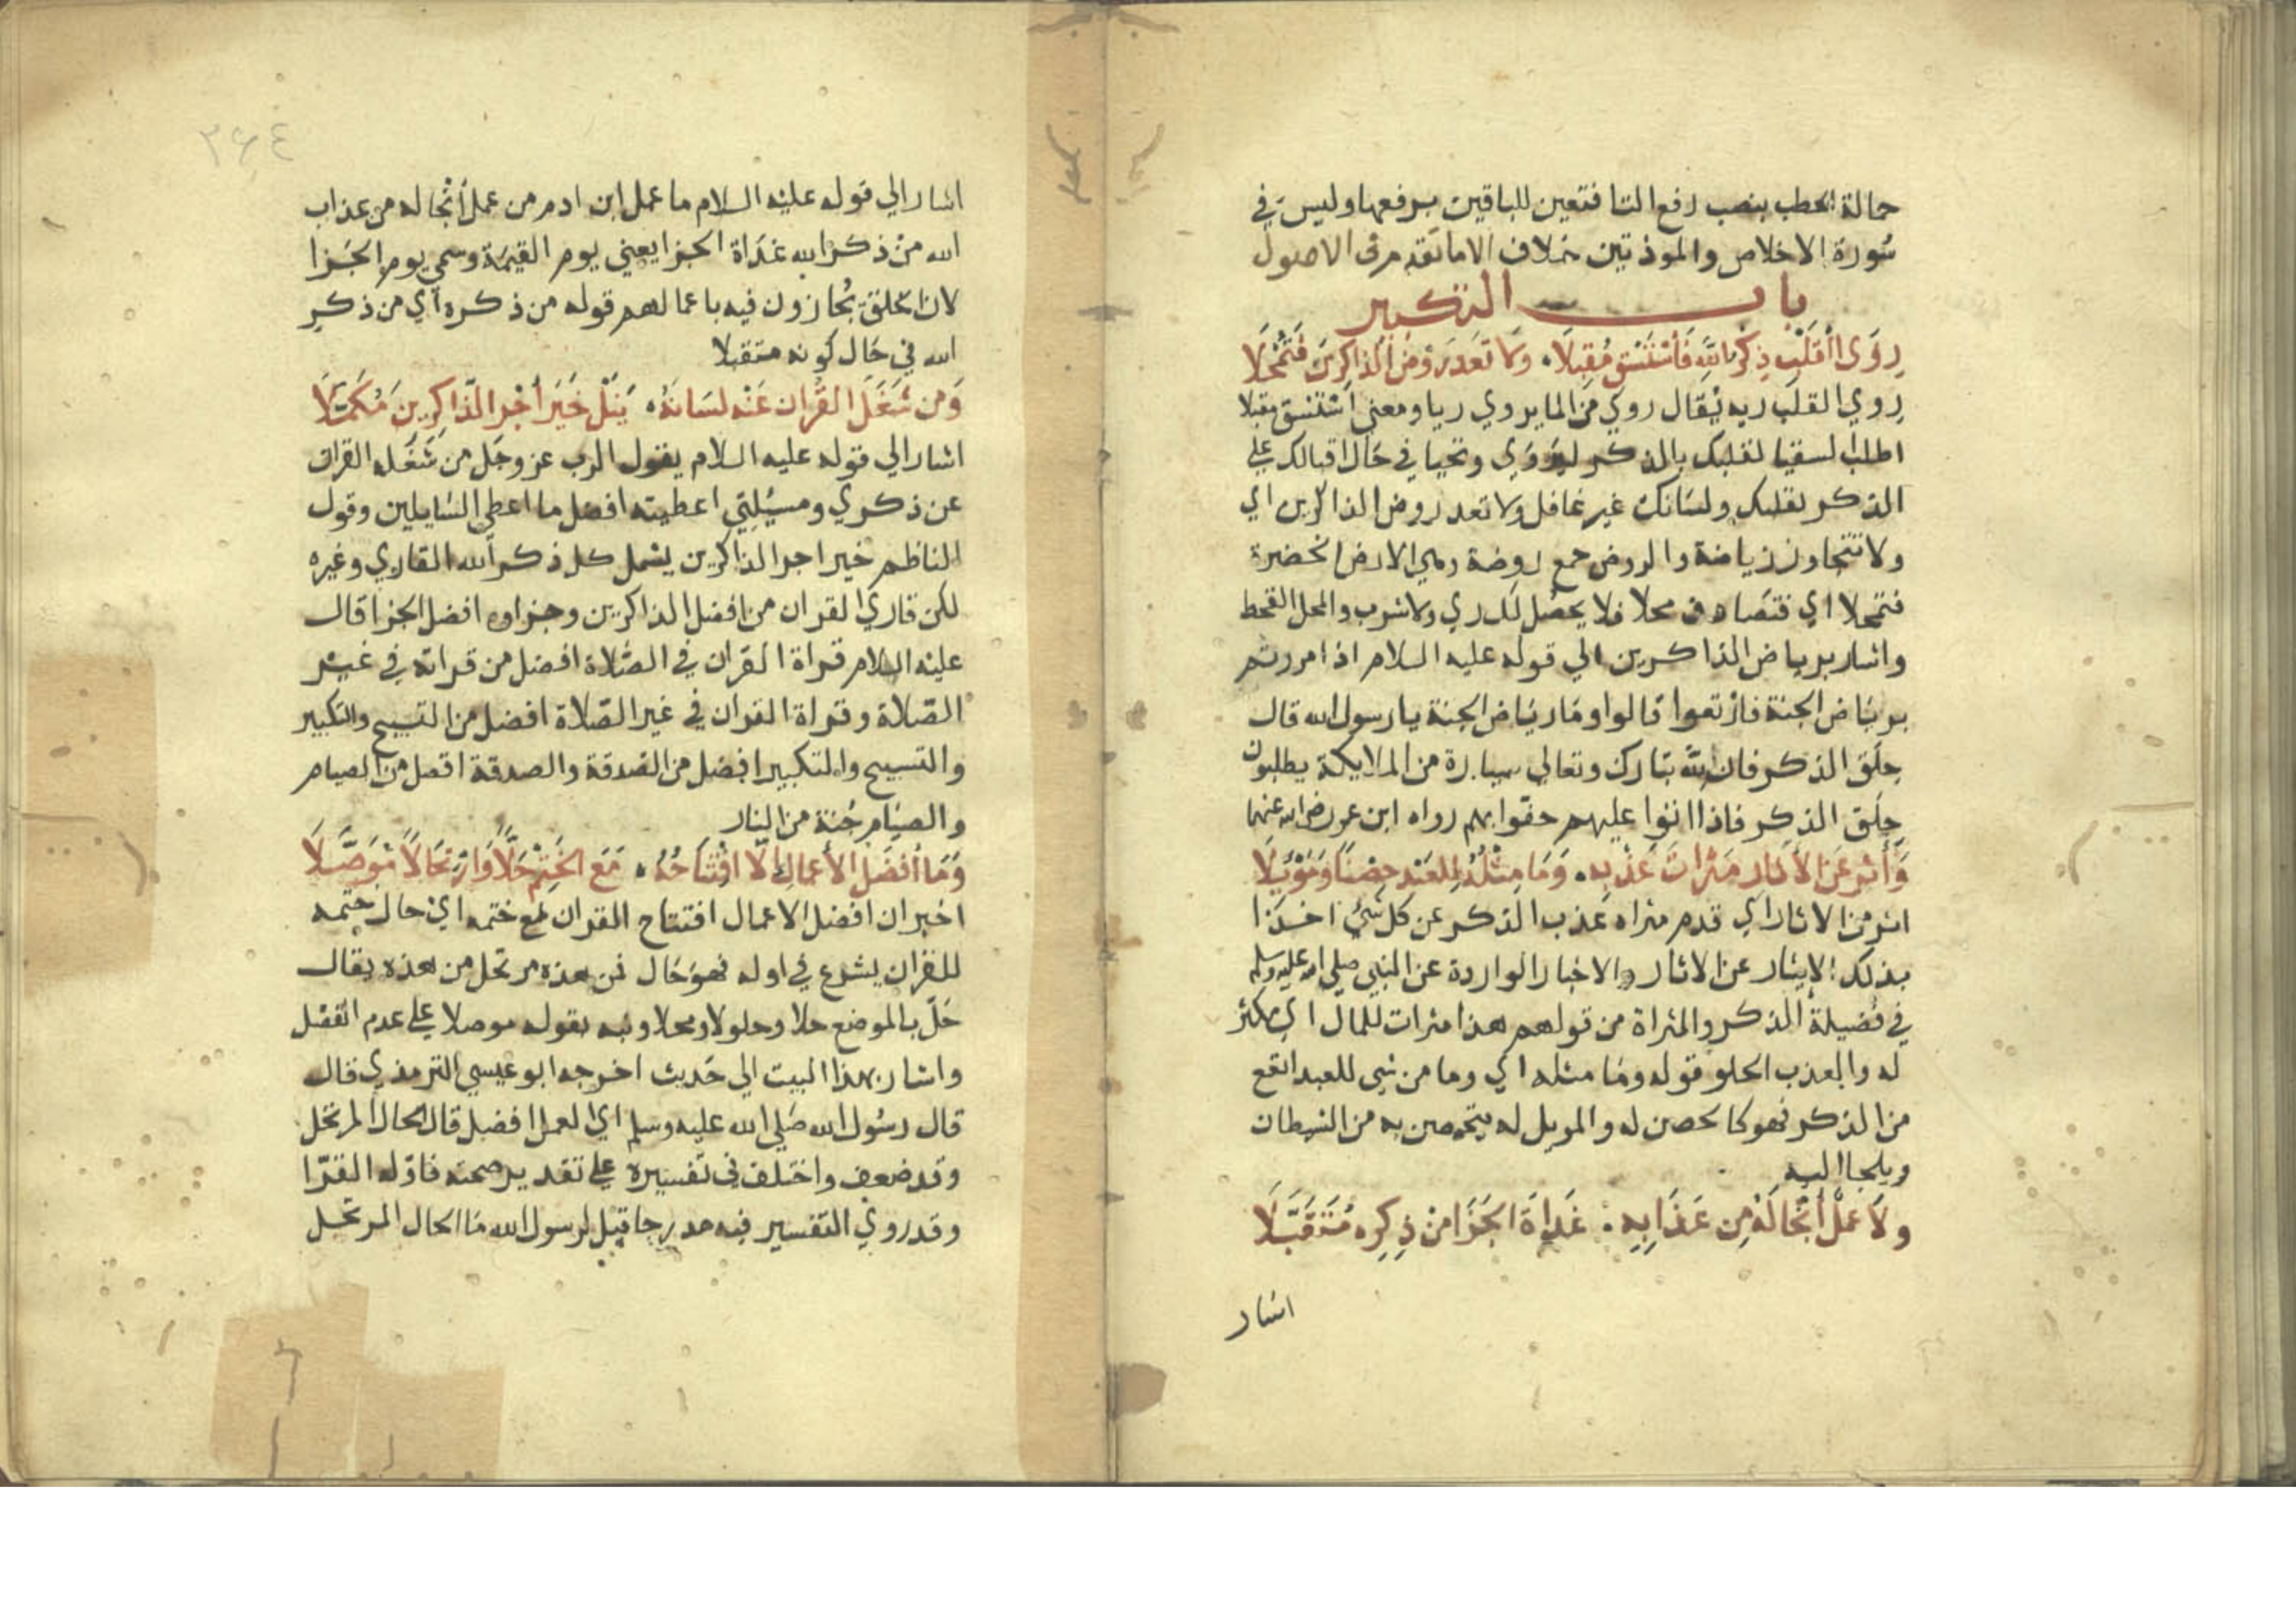 حمالة الحطب بنصب رفع التا فتعين للباقين برفعها وليس في
سورة الاخلاص والموذتين خلاف الا ما تقدم في الاصول
باب التكبير
رِوَى اَلْقَلْبِ ذِكْرُ اللَّهِ فَاسْتَسْقِ مُقْبِلَا وَلَا تَعْدُ رَوْضَ الذَّاكِرِينَ فَتُمْحِلَا
رِوي القلب ريه يُقال روي من الما يروي ريا ومعنى استسق مقبلا
اطلب السقيا لقلبك بالذكر ليروي وتحيا في حال اقبالك علي
الذكر بقلبك ولسانك غير غافل ولا تعد روض الذاكرين اي
ولا تتجاوز رياضة والروض جمع روضة وهي الارض الخضرة
فتمحلا اي فتصادف محلا فلا يحصل لك ري ولا شرب والمحل القحط
واشار برياض الذاكرين الي قوله عليه السلام اذا مررتم
برياض الجنة فارتعوا قالوا وما رياض الجنة يا رسول الله قال
حِلَق الذكر فان لله تبارك وتعالي سيارة من الملايكة يطلبون
حِلَق الذكر فاذا اتوا عليهم حفوا بهم رواه ابن عمر رضي الله عنهما
وَأثِر عَن الآثار مَثْرَاتَ عَذْبِهِ وَمَا مِثْلُهُ لِلْعَبْدِ حِصْنًا وَمَوْئِلَا
اثر من الاثار اي قدم مثراه عذب الذكر عن كل شي اخذا
بذلك الايثار عن الاثار والاخبار الواردة عن النبي صلي الله عليه وسلم
في فضيلة الذكر والمثراة من قولهم هذا مثرات للمال اي مكثر
له والعذب الحلو قوله وما مثله اي وما من شي للعبد انفع
من الذكر فهو كالحصن له والمويل له يتحصن به من الشيطان
ويلجا اليه
ولَا عَمَلٌ أنْجَا لَهُ مِن عَذَابِهِ غَدَاةَ الجَزَا مِنْ ذِكِرِه مُتَقَبَّلَا
اشار
٢٦٤
اشار الي قوله عليه السلام ما عمل ابن ادم من عمل أنجا له من عذاب
الله من ذكر الله غداة الجزا يعني يوم القيمة وسمي يوم الجزا
لان الخلق يُجازون فيه باعمالهم قوله من ذكره اي من ذكر
الله في حال كونه متقبلا
وَمن شَغَلَ القُرْآن عَنْه لسَانَهُ يَنَلْ خَيْرَ أجْرِ الذَّاكِرِينَ مُكَمَّلَا
اشار الي قوله عليه السلام يقول الرب عز وجل من شغله القران
عن ذكري ومسيلتي اعطيته افضل ما اعطي السايلين وقول
الناظم خير اجر الذاكرين يشمل كل ذكر الله القاري وغيره
لكن قاري القران من افضل الذاكرين وجزاوه افضل الجزا قال
عليه السلام قراة القران في الصلاة افضل من قراته في غير
الصلاة وقراة القران في غير الصلاة افضل من التسبيح والتكبير
والتسبيح والتكبير افضل من الصدقة والصدقة افضل من الصيام
والصيام جُنة من النار
وَمَا أفْضَل الأعمالِ إلَّا افْتِتَاحُهُ مَعَ الخَتْمِ حَلًّا وَارْتِحَالًا مُوَصَّلَا
اخبر ان افضل الاعمال افتتاح القران مع ختمه اي حال ختمه
للقران يشرع في اوله فهو حال من هذه مرتحل من هذه يقال
حلّ بالموضع حلا وحلولا ومحلا ونبه بقوله موصلا علي عدم الفصل
واشار بهذا البيت الي حديث اخرجه ابو عيسي الترمذي قال
قال رسول الله صلي الله عليه وسلم اي العمل افضل قال الحال المرتحل
وقد ضعف واختلف في تفسيره علي تقدير صحته فاوله القرّا
وقد روي التفسير فيه مدرجا قيل لرسول الله ما الحال المرتحل